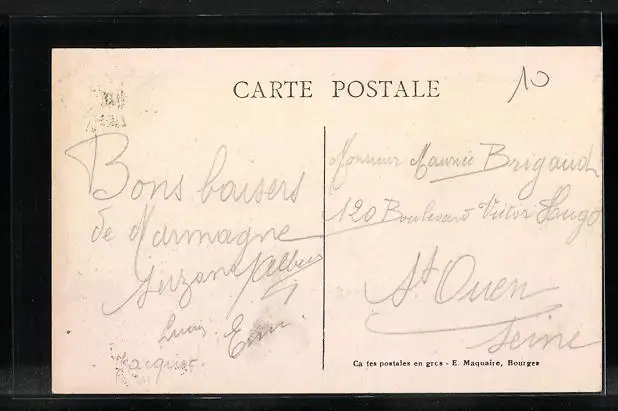 CARTE POSTALE
10
Bons baisers
de Marmagne
Suzanne Albert
Lucien
Jacques.
Monsieur Maurice Brigaud
120 Boulevard Victor Hugo
St. Ouen
Seine
Ca tes postales en gros - E. Maquaire, Bourges